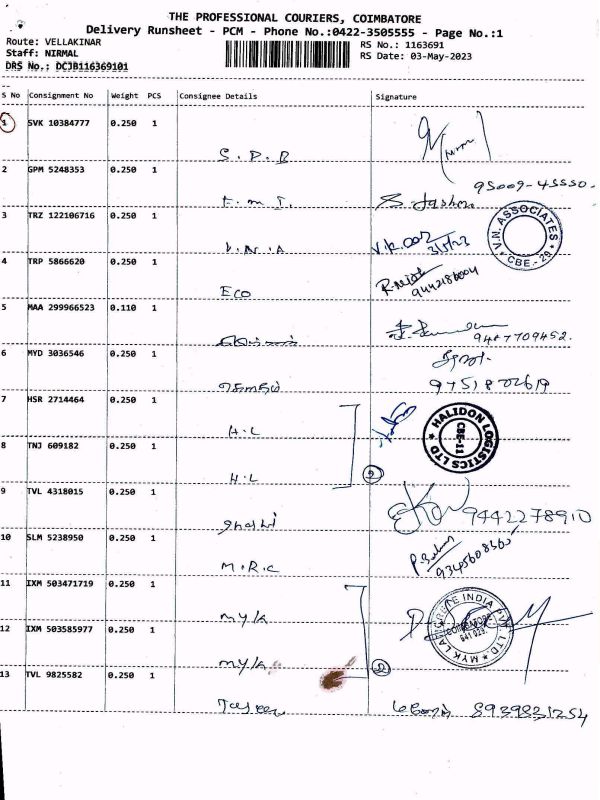 THE PROFESSIONAL COURIERS, COIMBATORE
Delivery Runsheet - PCM - Phone No.:0422-3505555 - Page No.:1
Route: VELLAKINAR
RS No.: 1163691
Staff: NIRMAL
RS Date: 03-May-2023
DRS No.: DCJB116369101
S No Consignment No Weight PCS Consignee Details Signature
1 SVK 10384777 0.250 1
S.P.B
2 GPM 5248353 0.250 1
95009-45550.
3 TRZ 122106716 0.250 1
V.N.A 3/5/23
V.N. ASSOCIATES
CBE-29
4 TRP 5866620 0.250 1
ECO 9442186004
5 MAA 299966523 0.110 1
9487709452.
6 MYD 3036546 0.250 1
9751802619
7 HSR 2714464 0.250 1
H.L
HALIDON LOGISTICS LTD
CBE-11
8 TNJ 609182 0.250 1
H.L 2
9 TVL 4318015 0.250 1
9442278910
10 SLM 5238950 0.250 1
M.R.C
11 IXM 503471719 0.250 1
MY/K
12 IXM 503585977 0.250 1
MY/K 2
13 TVL 9825582 0.250 1
8939831254